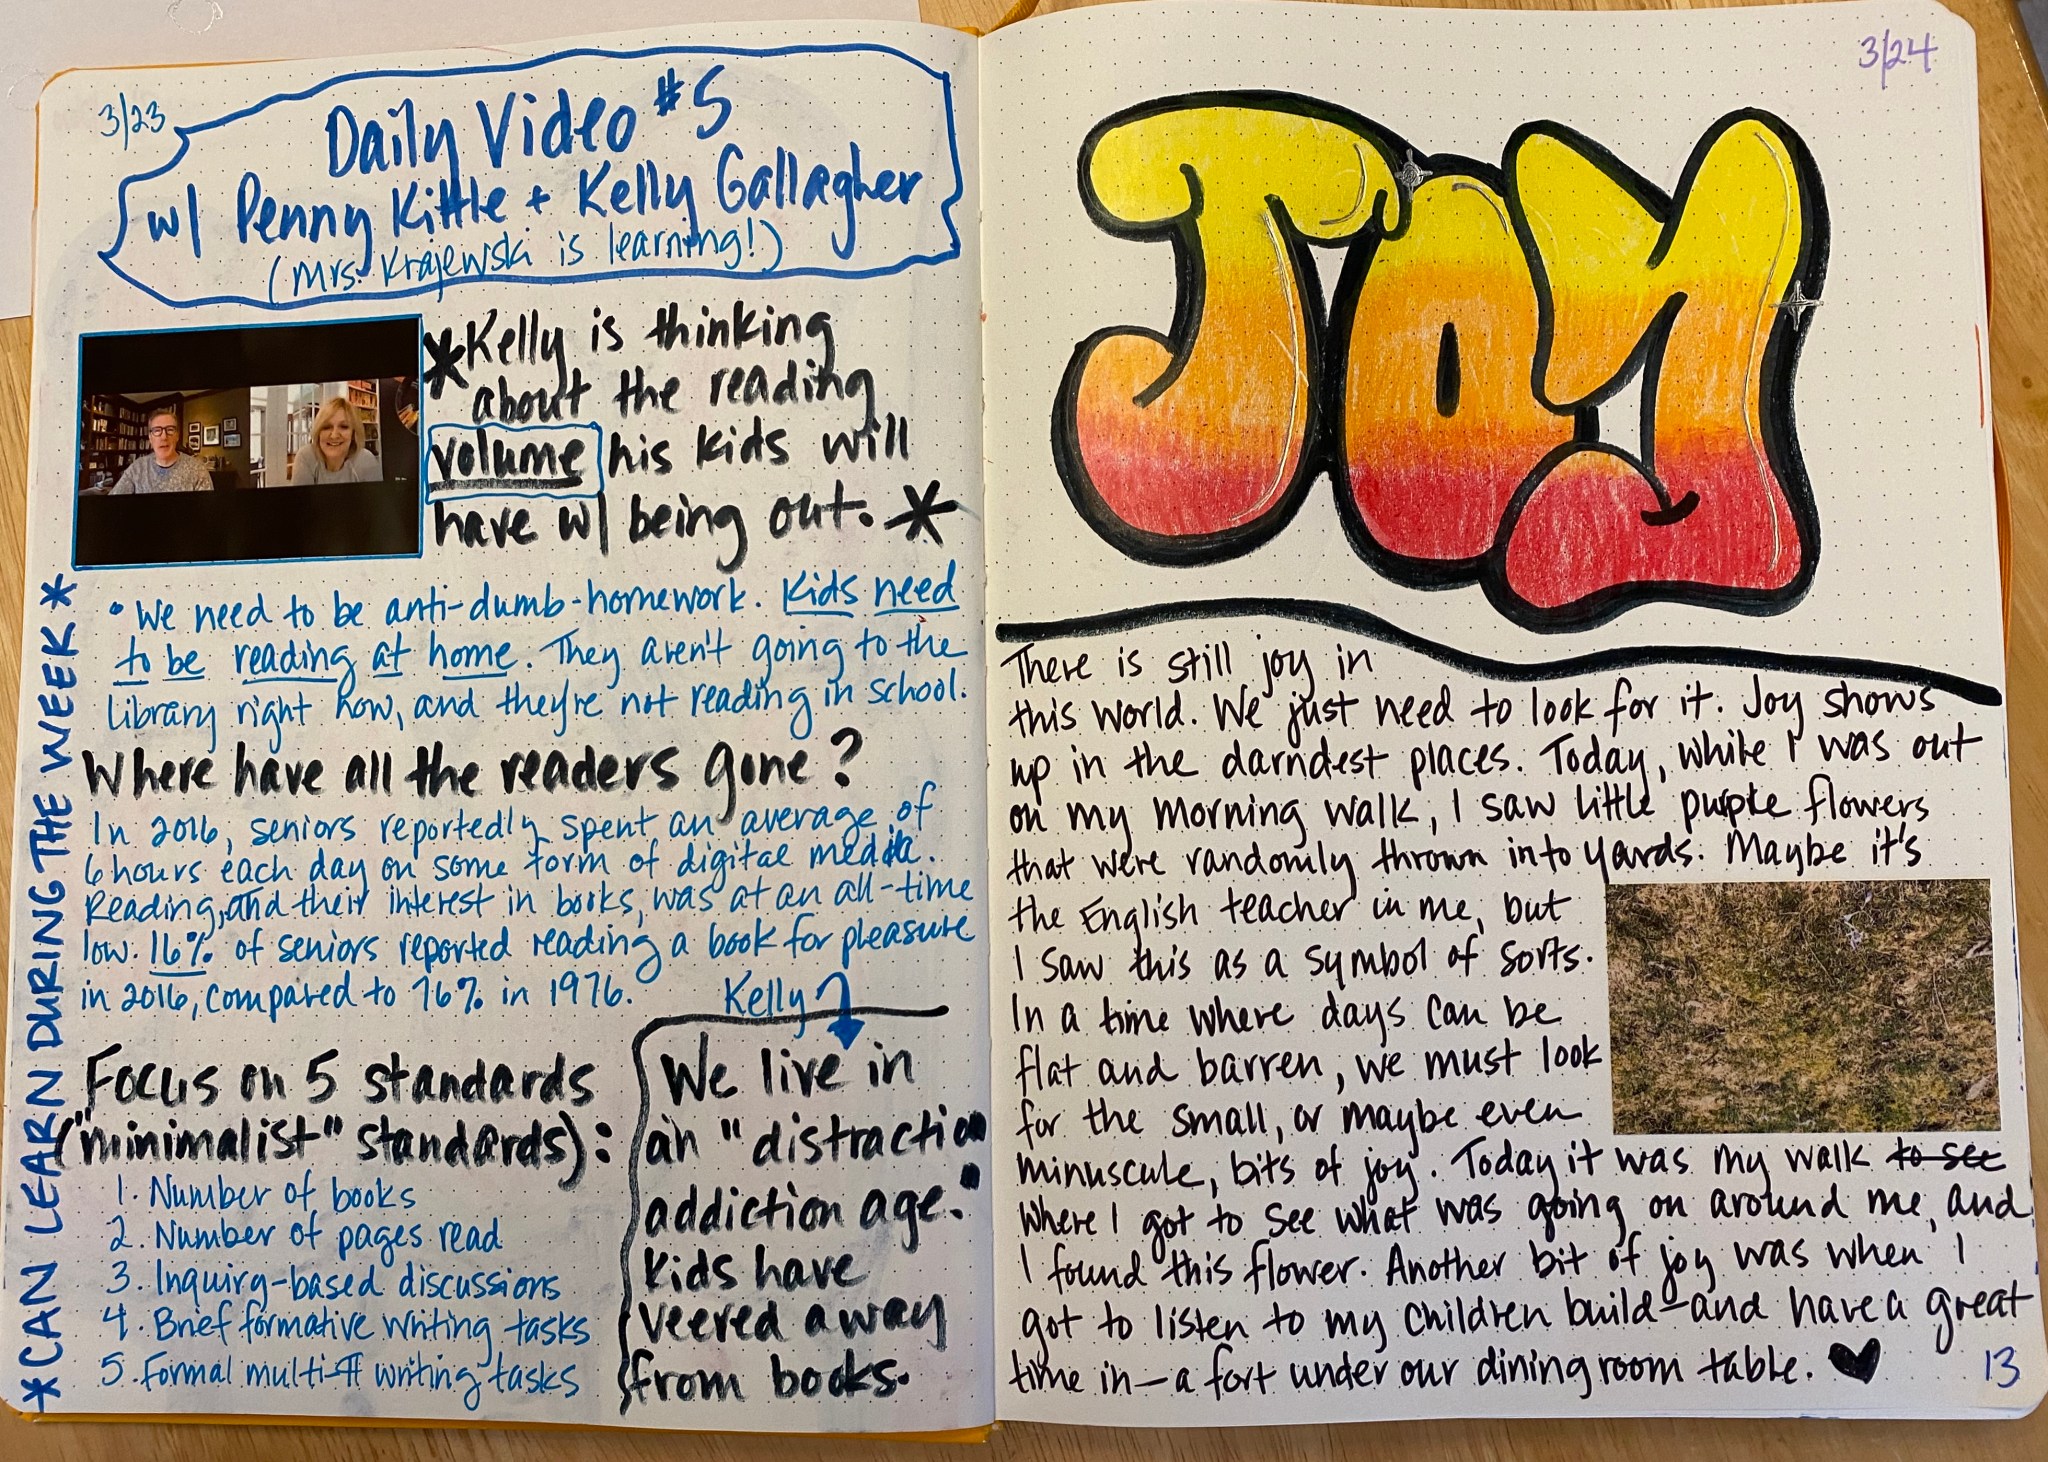 3/23
Daily Video #5
w/ Penny Kittle + Kelly Gallagher
(Mrs. Krajewski is learning!)
*Kelly is thinking
about the reading
volume his kids will
have w/ being out.*
• We need to be anti-dumb-homework. Kids need
to be reading at home. They aren't going to the
library right now, and they're not reading in school.
Where have all the readers gone?
In 2016, seniors reportedly spent an average of
6 hours each day on some form of digital media.
Reading, and their interest in books, was at an all-time
low. 16% of seniors reported reading a book for pleasure
in 2016, compared to 76% in 1976.
Focus on 5 standards
("minimalist" standards):
1. Number of books
2. Number of pages read
3. Inquiry-based discussions
4. Brief formative writing tasks
5. Formal multi-¶ writing tasks
Kelly
We live in
an "distraction
addiction age."
Kids have
veered away
from books.
*CAN LEARN DURING THE WEEK*
3/24
JOY
There is still joy in
this world. We just need to look for it. Joy shows
up in the darndest places. Today, while I was out
on my morning walk, I saw little purple flowers
that were randomly thrown into yards. Maybe it's
the English teacher in me, but
I saw this as a symbol of sorts.
In a time where days can be
flat and barren, we must look
for the small, or maybe even
minuscule, bits of joy. Today it was my walk to see
where I got to see what was going on around me, and
I found this flower. Another bit of joy was when I
got to listen to my children build—and have a great
time in—a fort under our dining room table. ♥
13